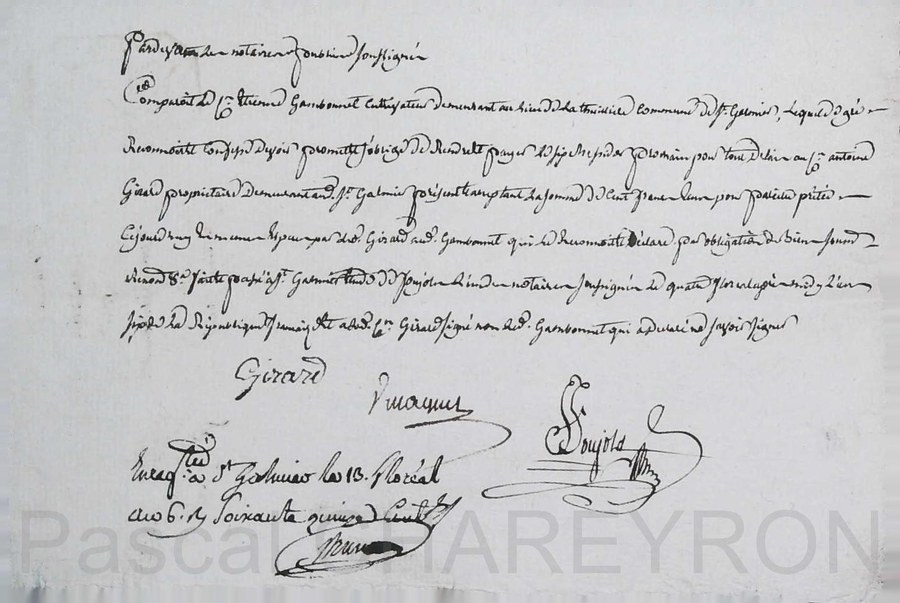 Pardevant les notaires publics soussignés
Comparoit le Cen etienne Gambonnet Cultivateur demeurant au lieu de la thuilliere commune de St. Galmier, lequel de gré
Reconnoit et Confesse devoir promet et s'oblige de Rendre et payer prochain pour tout delai au Cen antoine
Girard propriétaire demeurant aud. St. Galmier présent et acceptant la somme de Cent francs pour pareille prêtée
Cejourd'huy en espece par led. Girard aud. Gambonnet qui le Reconnoit et déclare par obligation de Bien
fait et passé a St. Galmier étude de Poujols l'un des notaires soussignés le quatre floreal après midy l'an
six de la République française et a led. Cen Girard signé non led. Gambonnet qui a declaré ne savoir signer
Girard
Poujols
Enregtré a St Galmier le 13. floréal
an 6. R. Soixante quinze Cent.
Pascal HAREYRON